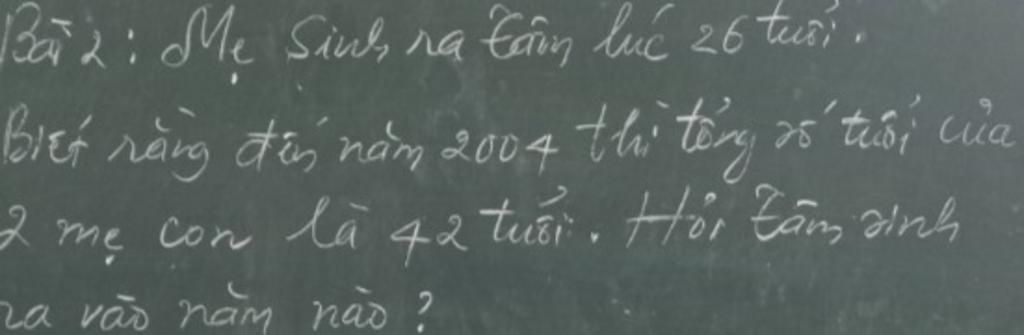 Bài 2: Mẹ sinh ra Tâm lúc 26 tuổi.
Biết rằng đến năm 2004 thì tổng số tuổi của
2 mẹ con là 42 tuổi. Hỏi Tâm sinh
ra vào năm nào?